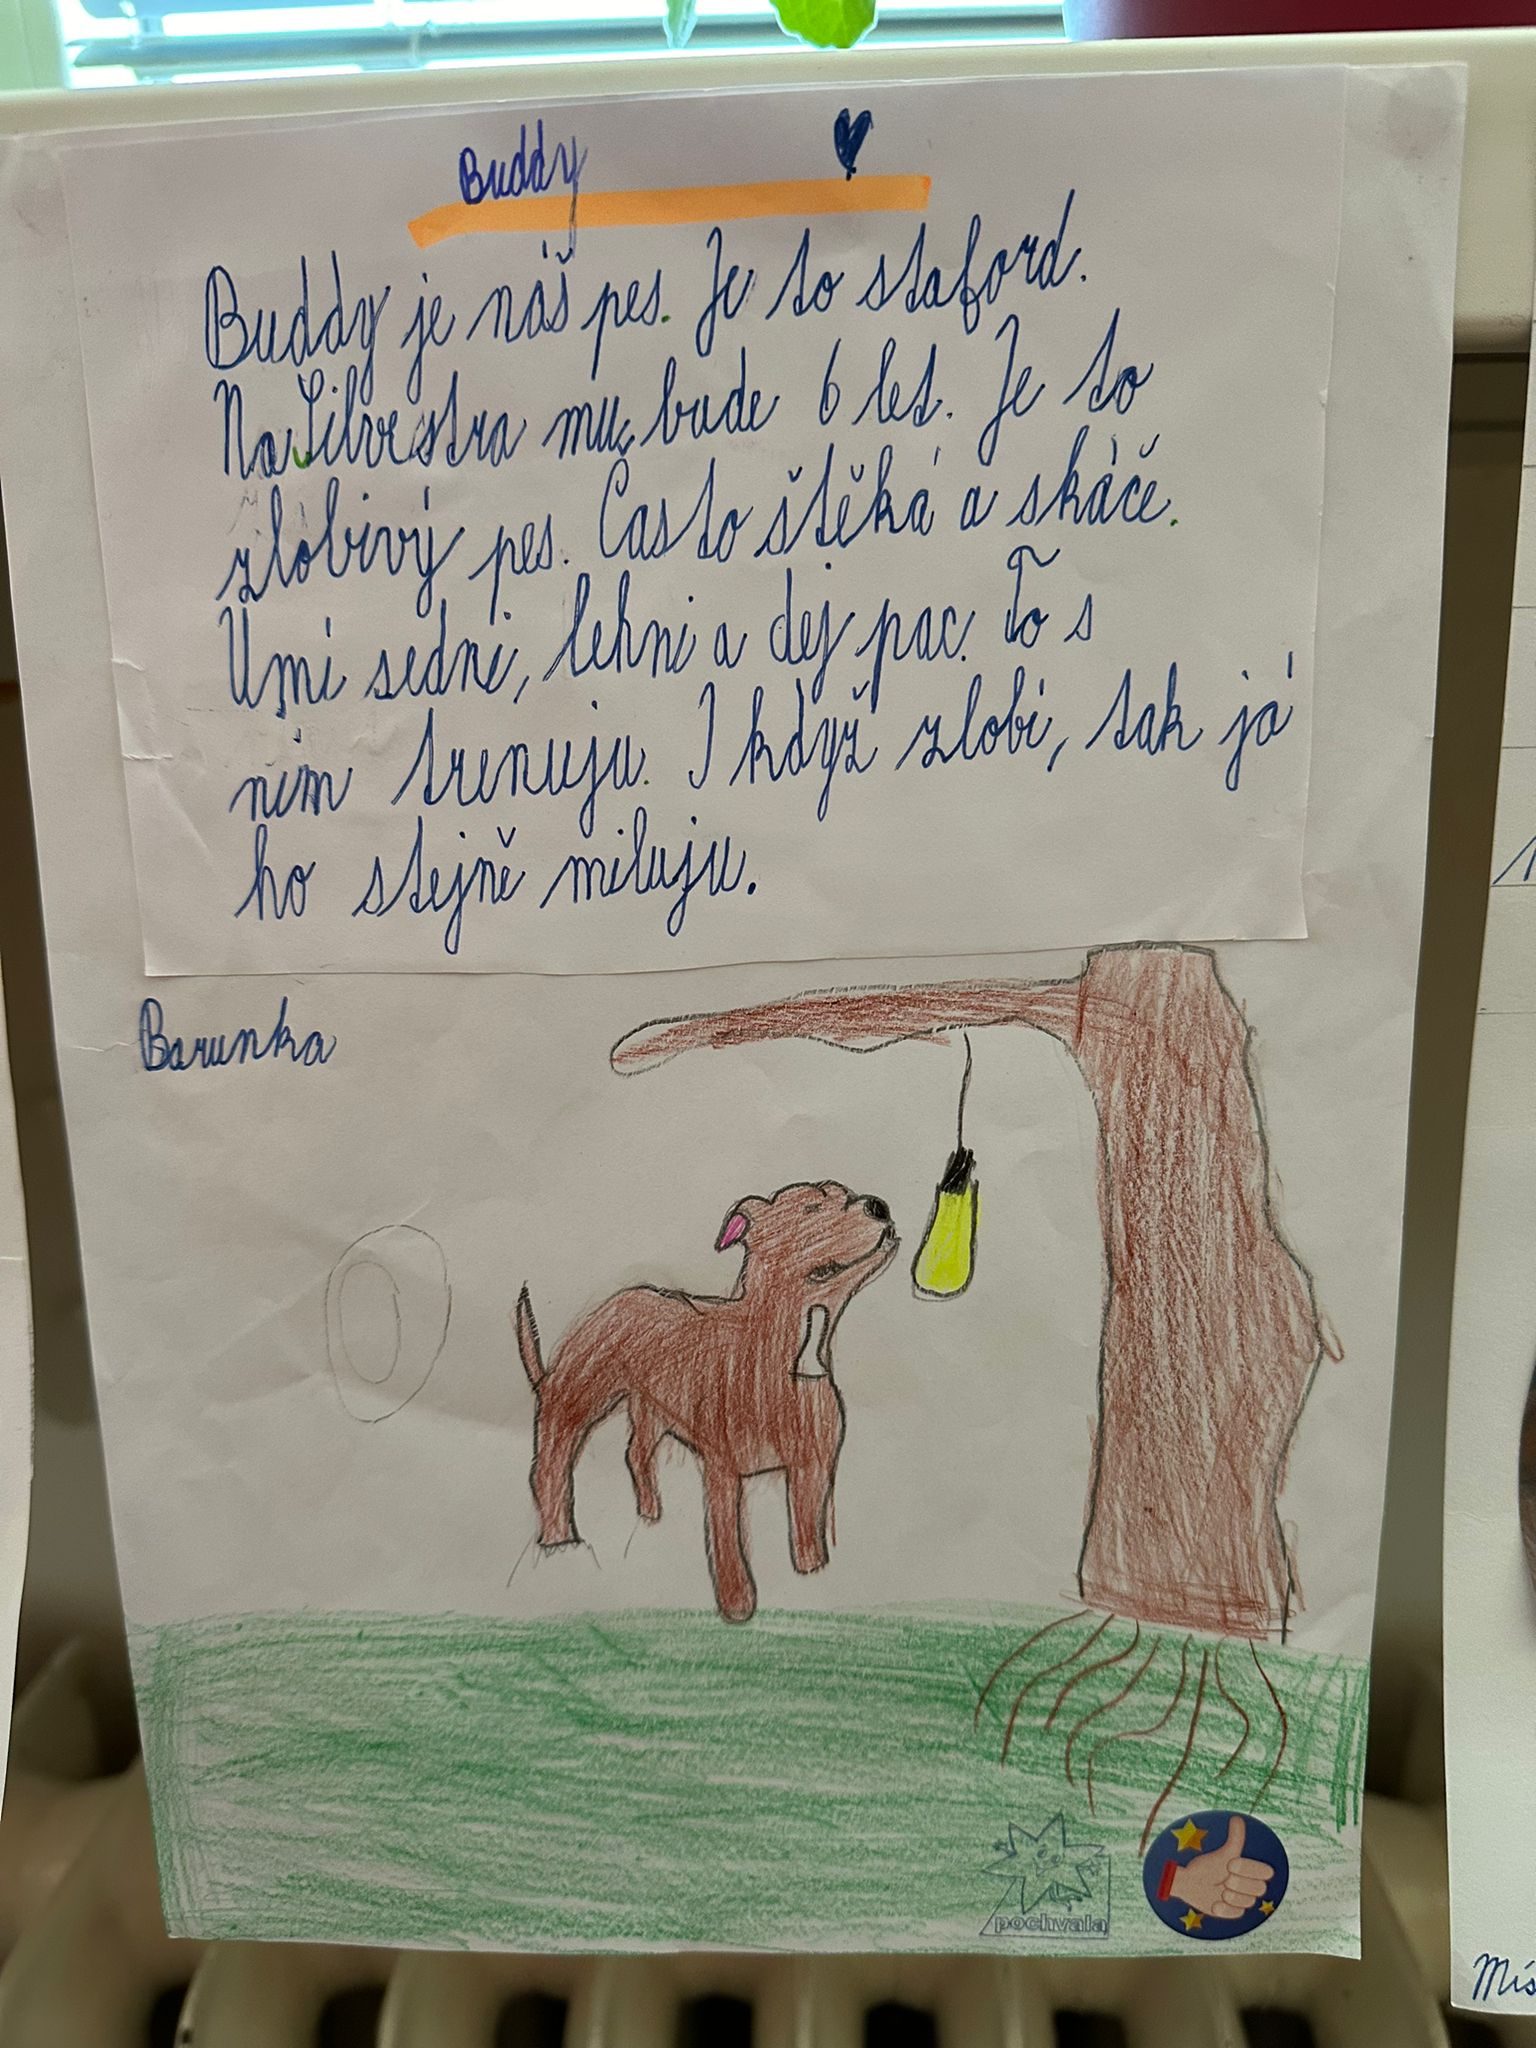 Buddy
Buddy je náš pes. Je to staford.
Na Silvestra mu bude 6 let. Je to
zlobivý pes. Často štěká a skáče.
Umí sedni, lehni a dej pac. To s
ním trenuju. I když zlobí, tak já
ho stejně miluju.
Barunka
pochvala